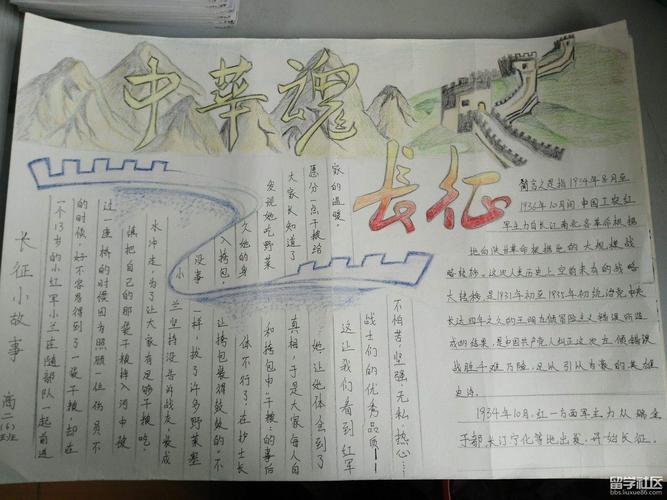 中華魂
长征
长征小故事
高二(6)班
一个13岁的小红军小兰在随部队一起前进
的时候,好不容易得到了一袋干粮,却在
过一座桥的时候因为照顾一位伤员不
慎把自己的那袋干粮掉入河中被
水冲走,为了让大家有足够干粮吃,
小兰坚持没告诉战友,装成
没事一样,拔了许多野菜塞
入挎包,让挎包装得鼓鼓的,不
久她的身体不行了,在护士长
发现她吃野菜和挎包中"干粮"的事后
大家长知道了真相,于是大家每人自
愿分一点干粮给她,让她体会到了
家的温暖。这让我们看到红军
战士们的优秀品质——
不怕苦,坚强,无私,热心…
1934年8月至
1936年10月间中国工农红
军主力自长江南北各革命根据
地向陕甘革命根据地的大规模战
略转移。这次人类历史上空前未有的战略
大转移,是1931年初至1935年初统治党中央
长达四年之久的王明左倾冒险主义错误所造
成的结果,是中国共产党人纠正这次左倾错误
战胜千难万险,足以引以为豪的英雄
史诗。
1934年10月,红一方面军主力从瑞金
于都,长汀宁化等地出发,开始长征。
留学社区
bbs.liuxue86.com